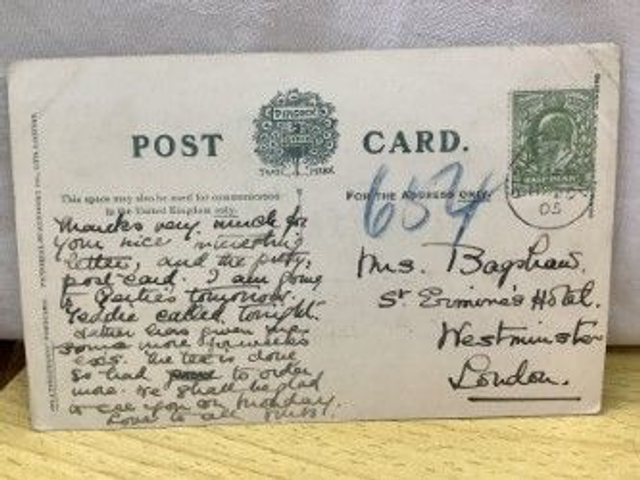 POST CARD.
PEACOCK
TRADE MARK
This space may also be used for communication
in the United Kingdom only.
FOR THE ADDRESS ONLY.
654
05
Mrs. Bagshaw.
St Ermine's Hotel.
Westminster
London.
Thanks very much for
your nice interesting
letter, and the pretty
post-card, I am going
to Gertie's tomorrow.
Teddie called tonight.
father has given me
some more
eggs. The tea is done
so had to order
more. We shall be glad
to see you on Monday.
Love to all